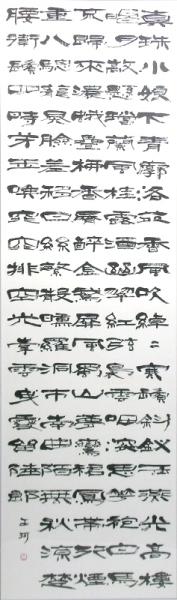 真珠小娘下青廓洛苑香風吹綽二寒鬢斜釵玉燕光高樓
唱月敲懸璫蘭風桂露灑幽翠紅絃裊雲咽深思花袍白馬
不歸來濃蛾疊柳香脣醉金鵝屏風蜀山夢鸞裾鳳帶行煙
重八驄籠晃臉差移日絲繁散曛羅洞市南曲陌無秋涼楚
腰衛鬢四時芳玉喉窱窱排空光牽雲曳雪留陸郎